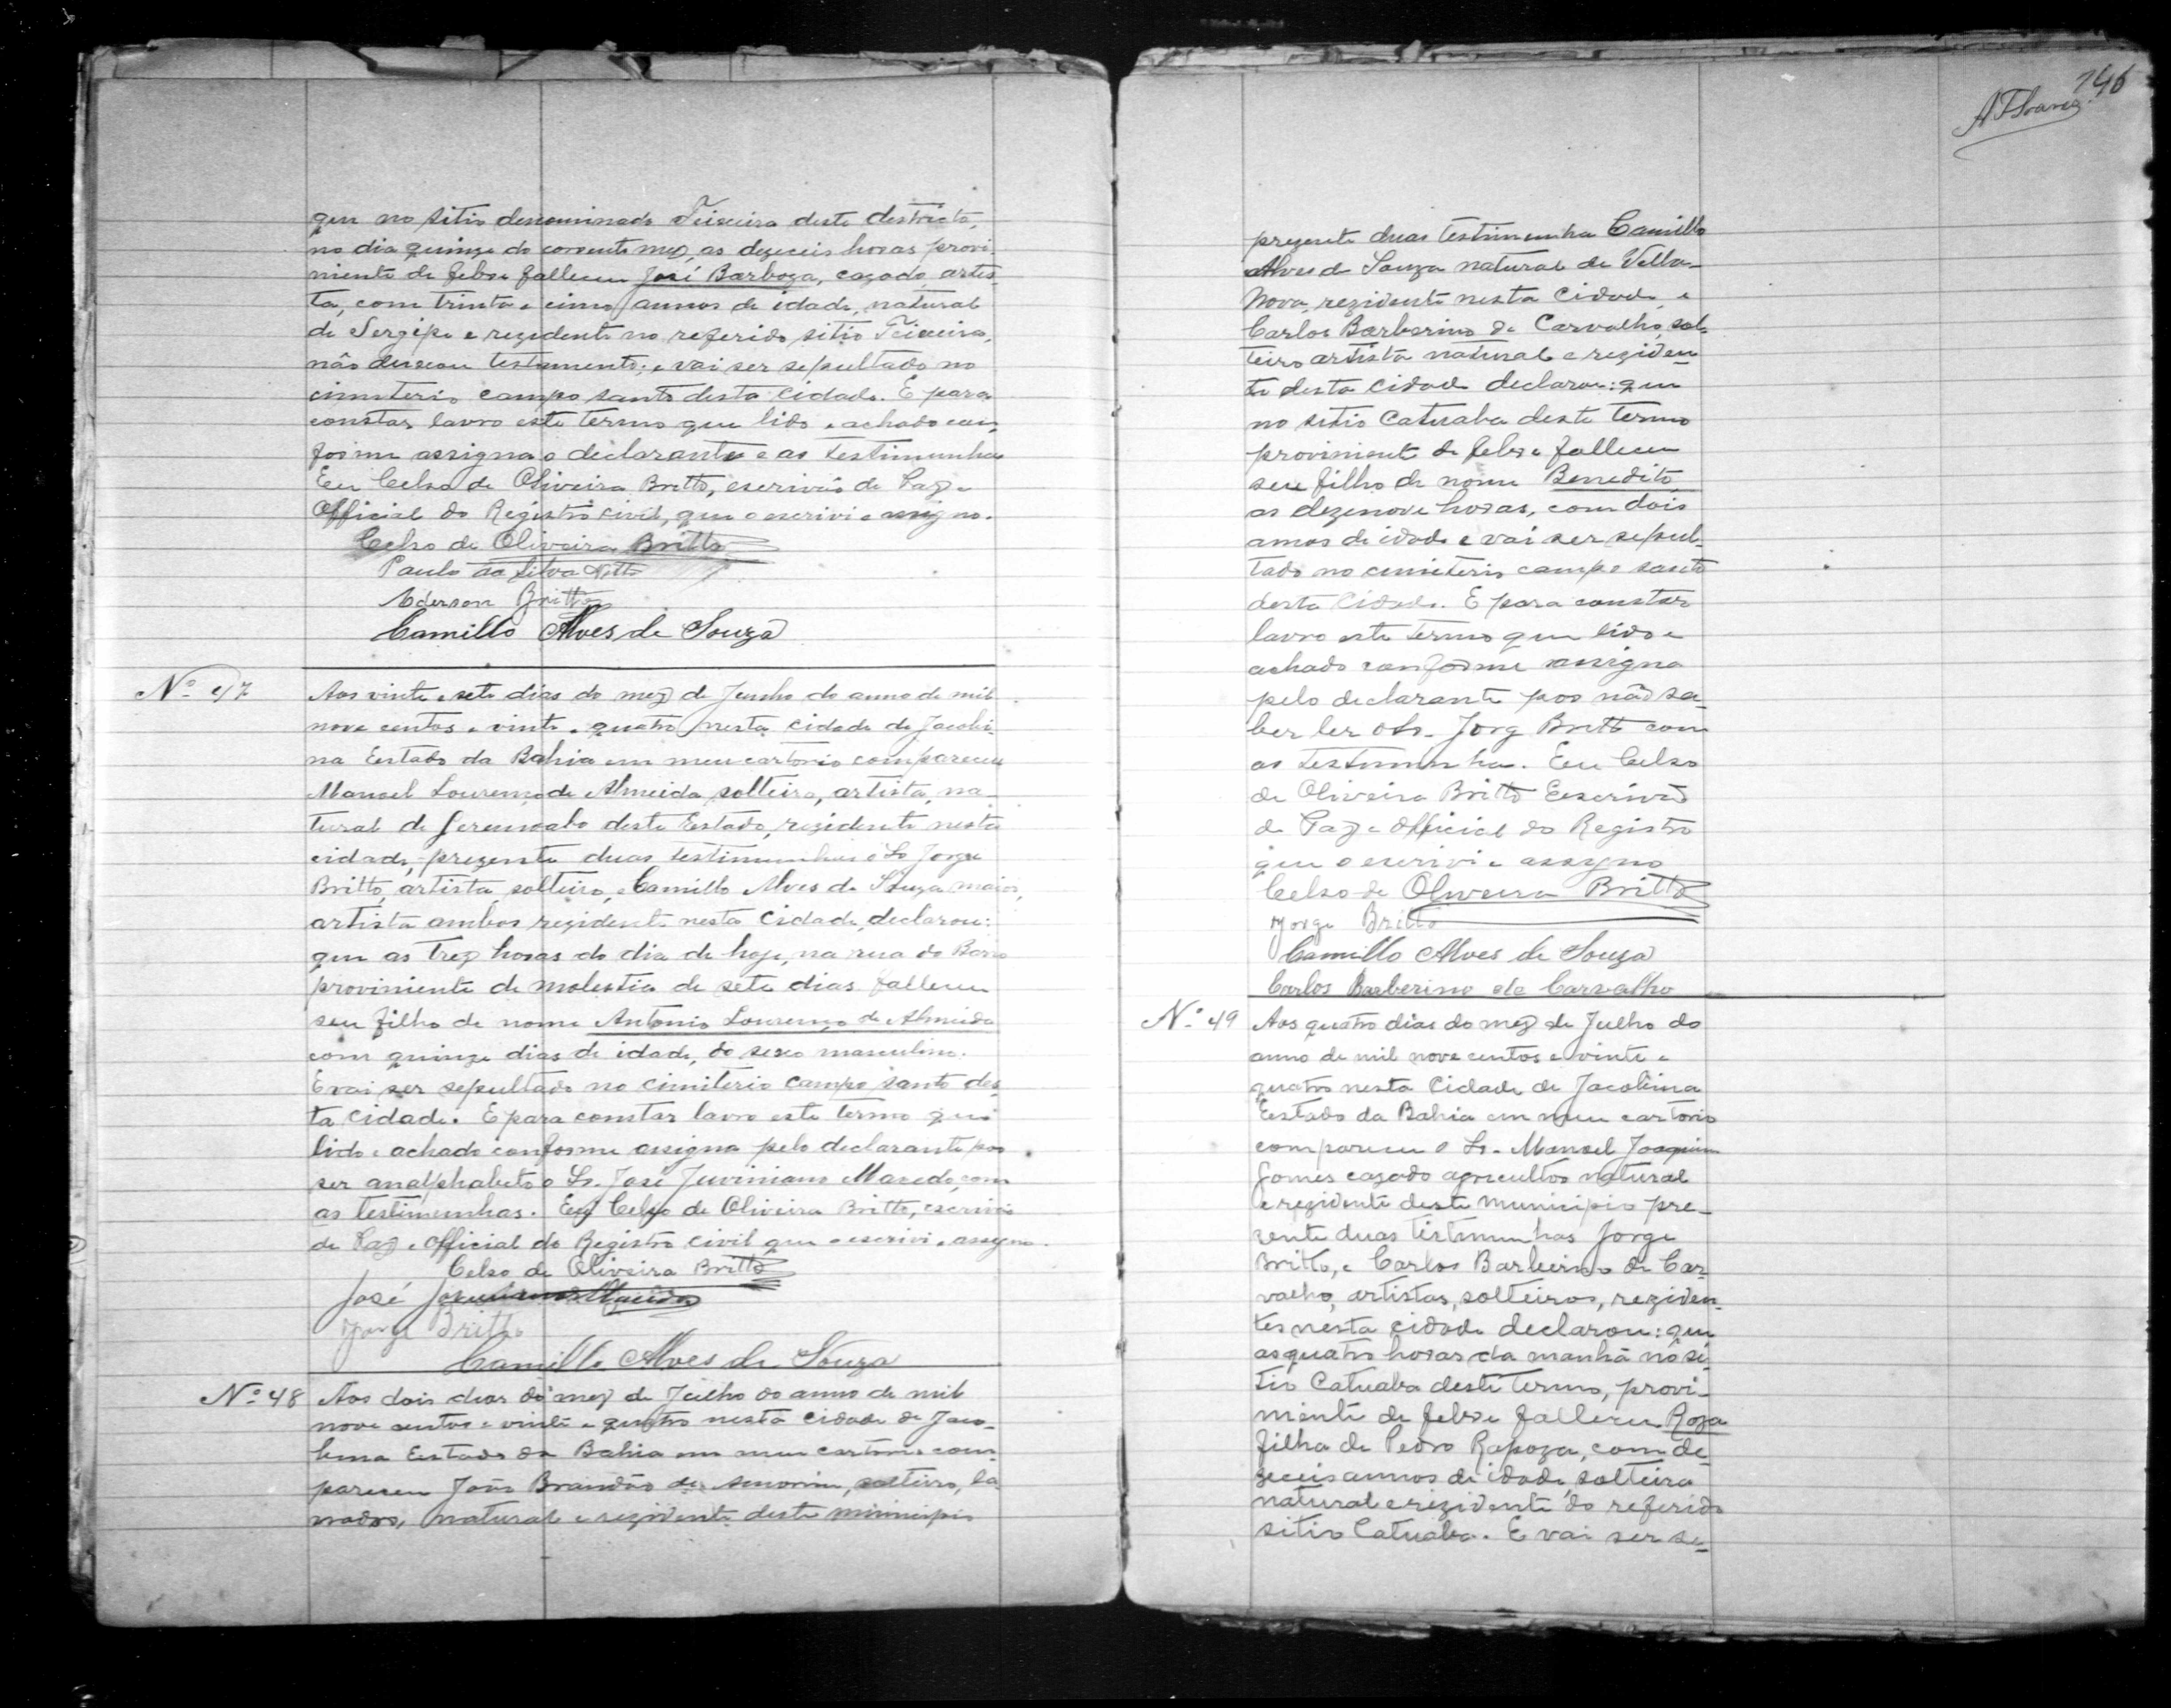 que no sitio denominado Teixeira deste destricto,
no dia quinze do corrente mez, as dezeceis horas provi-
niente de febre falleceu José Barboza, cazado, artes-
ta, com trinta e cinco annos de idade, natural
de Sergipe e rezidente no referido sitio Teixeira,
não deixou testamento; e vai ser sepultado no
cimiterio campo santo desta Cidade. E para
constar lavro este termo que lido e achado con-
forme assigna o declarante e as testimunhas
Eu Celso de Oliveira Britto, escrivão de Paz e
Official do Registro Civil, que o escrivi e assigno.
Celso de Oliveira Britto
Paulo da Silva
Aderson Britto
Camillo Alves de Souza
Nº 47
Aos vinte e sete dias do mez de Junho do anno de mil
nove centos e vinte e quatro nesta Cidade de Jacobi-
na Estado da Bahia em meu cartorio compareceu
Manoel Lourenço de Almeida solteiro, artista, na-
tural de Geremoabo deste Estado, rezidente nesta
cidade, prezente duas testimunhas o Sr Jorge
Britto, artista, solteiro, e Camillo Alves de Souza maior,
artista ambos rezidente nesta Cidade, declarou:
que as trez horas do dia de hoje, na rua do
proviniente de molestia de sete dias falleceu
seu filho de nome Antonio Lourenço de Almeida
com quinze dias de idade, do sexo masculino.
E vai ser sepultado no Cimiterio Campo Santo des-
ta cidade. E para constar lavro este termo que
lido e achado conforme assigna pelo declarante por
ser analphabeto o Sr. José Juviniano Macedo, com
as testimunhas. Eu Celso de Oliveira Britto, escrivão
de Paz e Official do Registro Civil que o escrivi e assigno.
Celso de Oliveira Britto
José
Jorge Britto
Camillo Alves de Souza
Nº 48
Aos dois dias do mez de Julho do anno de mil
nove centos e vinte e quatro nesta Cidade de Jaco-
bina Estado da Bahia em meu cartorio com-
pareceu João Brandão de Amorim, solteiro, la-
vrador, natural e rezidente deste municipio
146
prezente duas testimunha Camillo
Alves de Souza natural de Villa-
Nova, rezidente nesta Cidade e
Carlos Barberino de Carvalho, sol-
teiro artista natural e reziden-
te desta Cidade declarou: que
no sitio Catuaba deste termo
proviniente de febre falleceu
seu filho de nome Benedito,
as dezenove horas, com dois
annos de idade e vai ser sepul-
tado no cimiterio campo santo
desta Cidade. E para constar
lavro este termo que lido e
achado conforme assigna
pelo declarante por não sa-
ber ler o Sr. Jorg Britto com
as testimunha. Eu Celso
de Oliveira Britto Escrivão
de Paz e Official do Registro
que o escrivi e assigno
Celso de Oliveira Britto
Jorge Britto
Camillo Alves de Souza
Carlos Barberino de Carvalho
Nº 49
Aos quatro dias do mez de Julho do
anno de mil nove centos e vinte e
quatro nesta Cidade de Jacobina
Estado da Bahia em meu cartorio
compareceu o Sr. Manoel Joaquim
Gomes cazado agricultor natural
e rezidente deste municipio pre-
zente duas testimunhas Jorge
Britto, e Carlos Barberino de Car-
valho, artistas, solteiros, reziden-
tes nesta cidade declarou: que
as quatro horas da manhã no si-
tio Catuaba deste termo, provi-
niente de febre falleceu Roza
filha de Pedro Rapoza, com de-
zeceis annos de idade, solteira
natural e rezidente do referido
sitio Catuaba. E vai ser se-